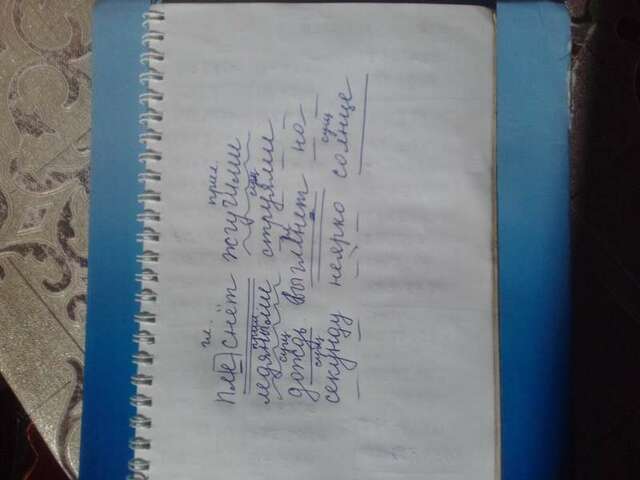 гл. прил.
плеснёт жгучими
прил сущ
ледяными струями
сущ
дождь выглянет на
сущ сущ
секунду неярко солнце